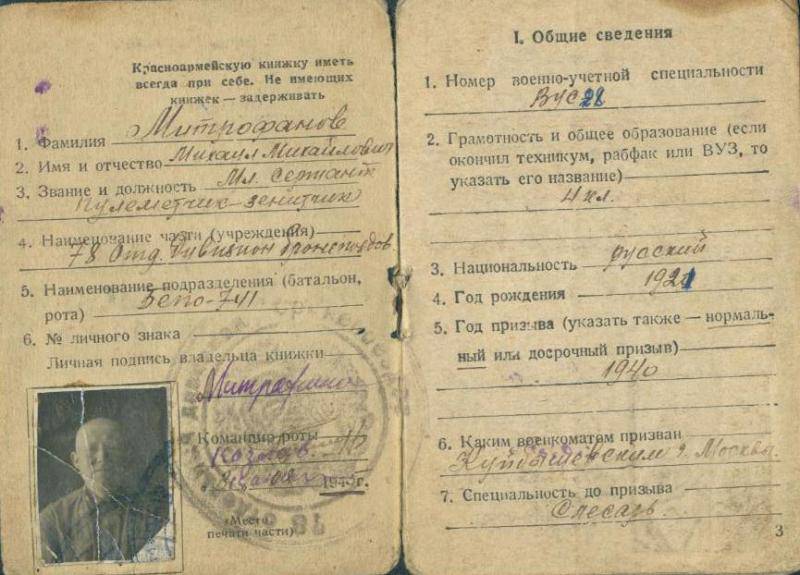 Красноармейскую книжку иметь
всегда при себе. Не имеющих
книжек — задерживать
1. Фамилия Митрофанов
2. Имя и отчество Михаил Михайлович
3. Звание и должность Мл. Сержант
Пулеметчик-зенитчик
4. Наименование части (учреждения)
78 Отд. Дивизион бронепоездов
5. Наименование подразделения (батальон,
рота) Бепо-741
6. № личного знака
Личная подпись владельца книжки
Митрофанов
Командир роты
194 г.
(Место
печати части)
I. Общие сведения
1. Номер военно-учетной специальности
ВУС 28
2. Грамотность и общее образование (если
окончил техникум, рабфак или ВУЗ, то
указать его название)
4 кл.
3. Национальность русский
4. Год рождения 1921
5. Год призыва (указать также — нормаль-
ный или досрочный призыв)
1940
6. Каким военкоматом призван
Куйбышевским г. Москвы.
7. Специальность до призыва
Слесарь.
3